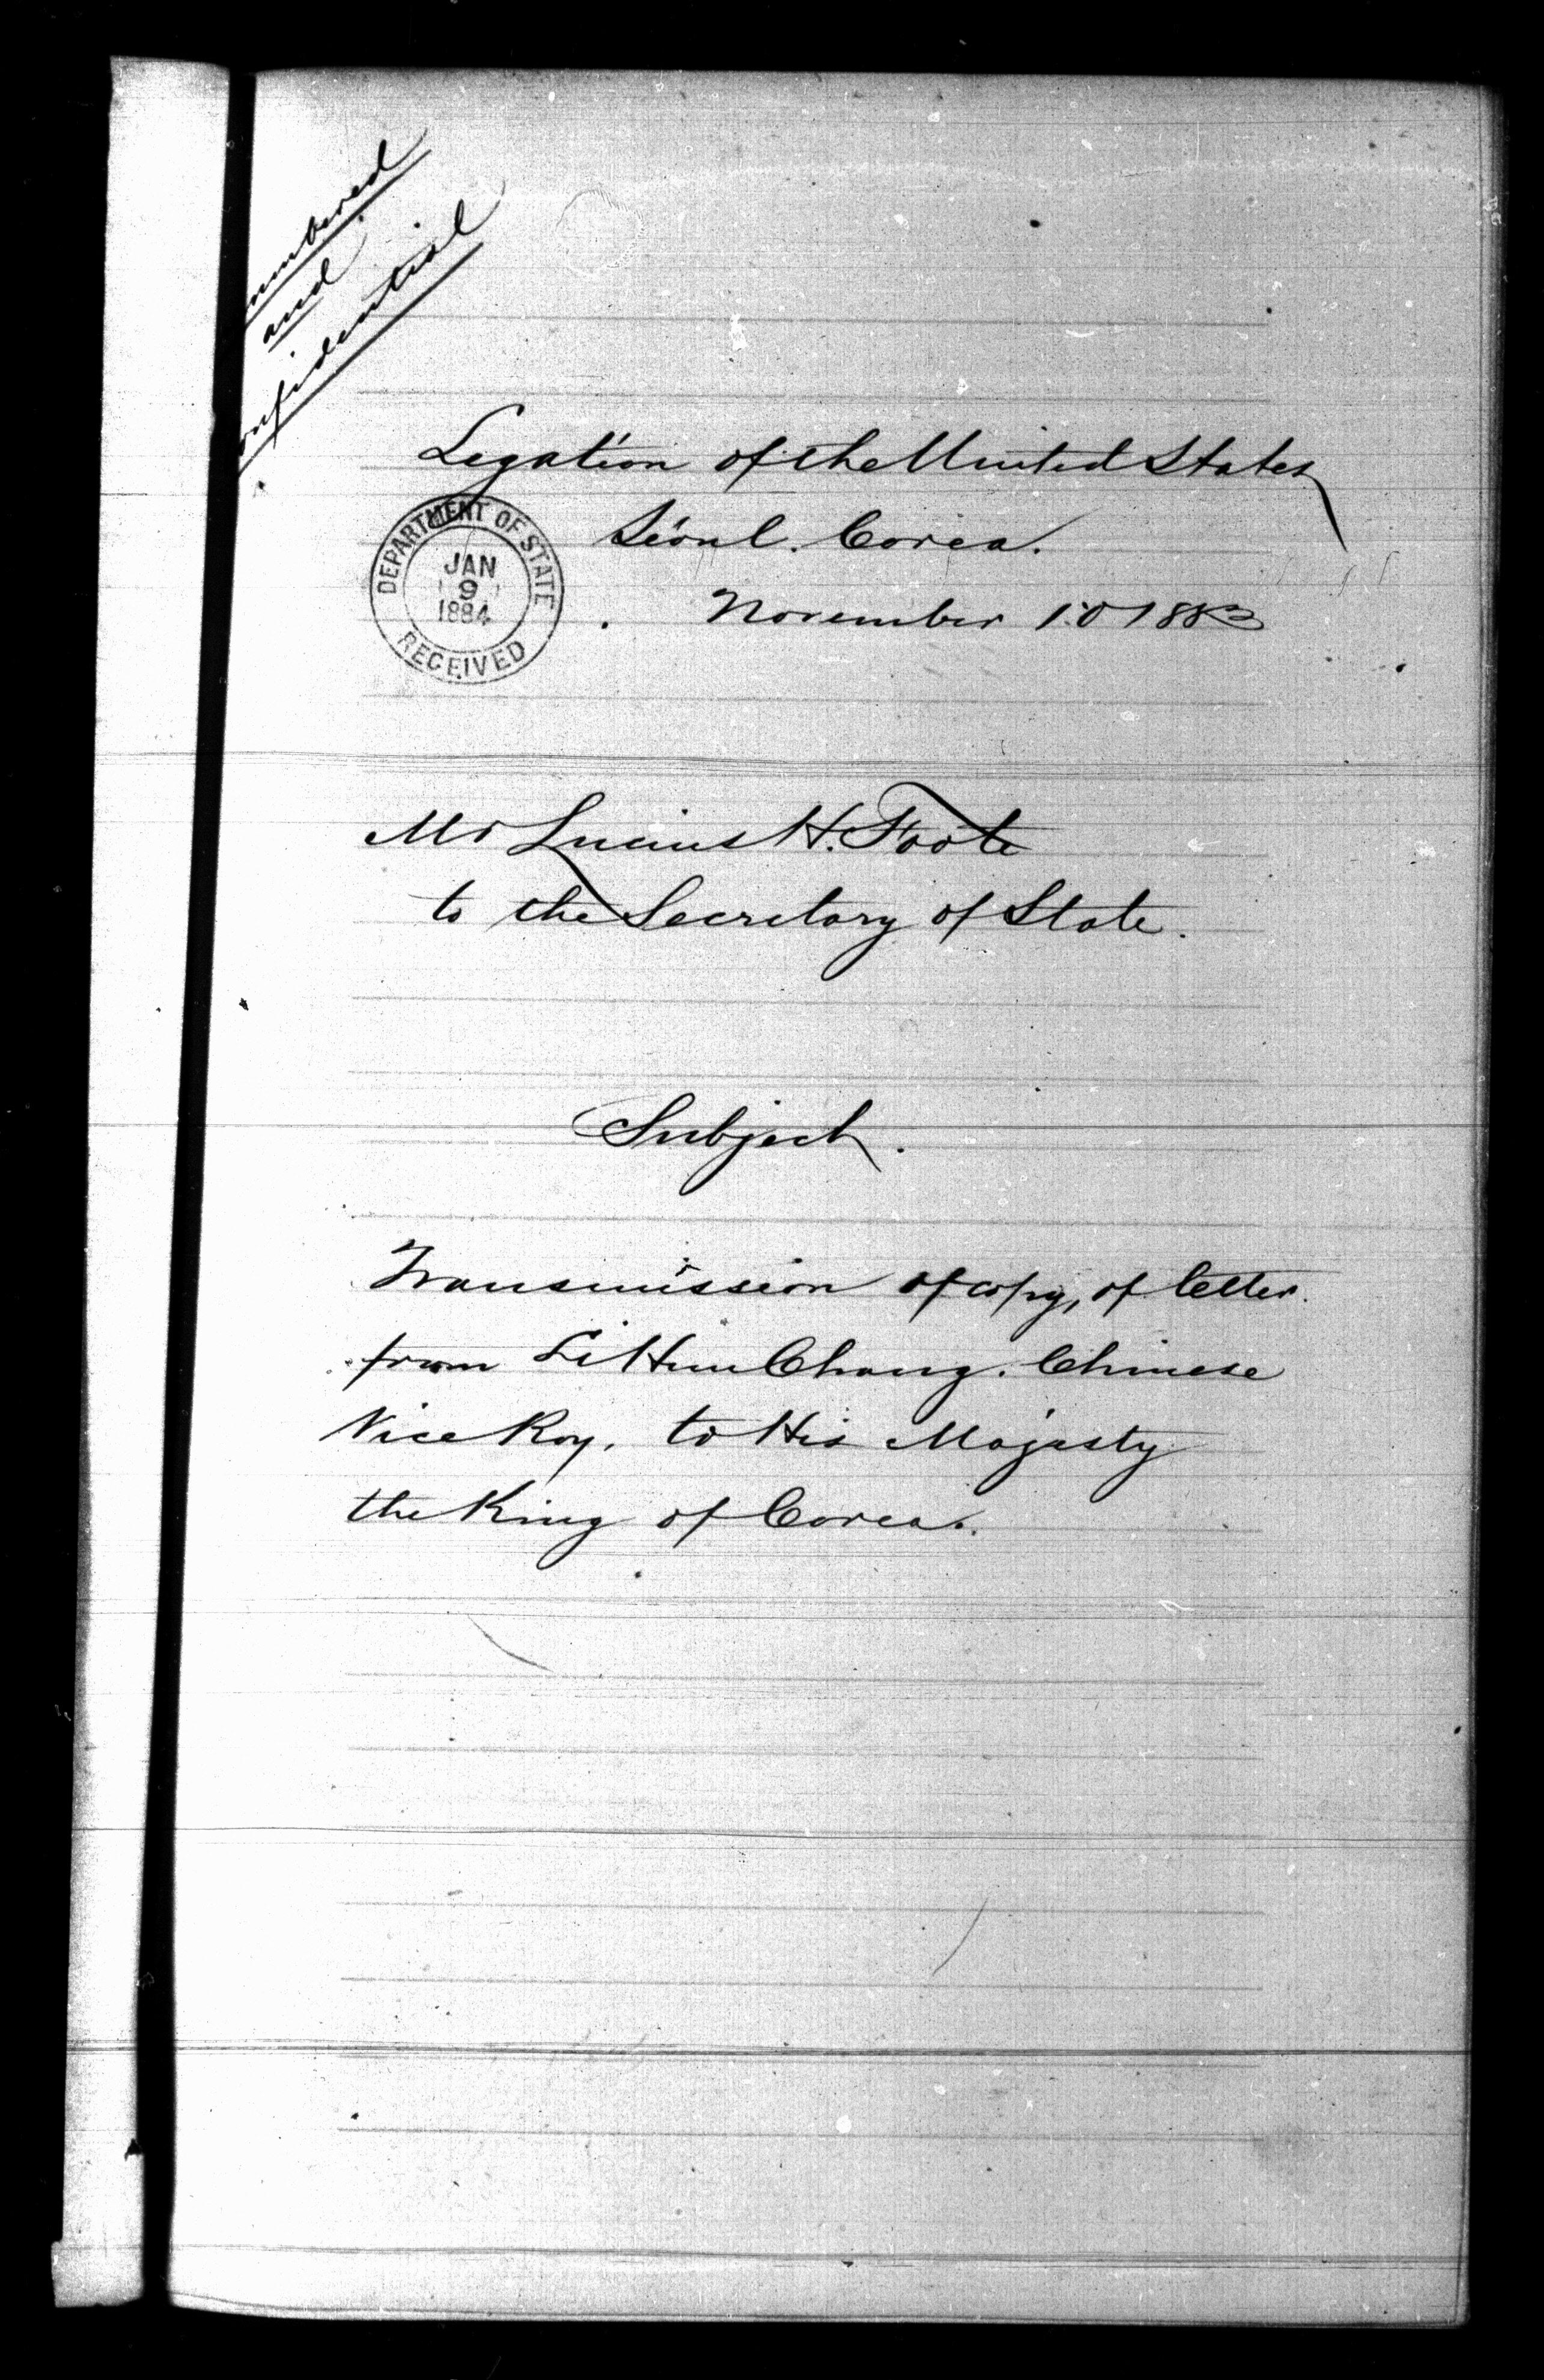 numbered
and
onfidential
Legation of the United States
Séoul. Corea.
November 10 1883
DEPARTMENT OF STATE
JAN
9
1884
RECEIVED
Mr Lucius H. Foote
to the Secretary of State.
Subject.
Transmission of copy, of letter
from Li Hun Chang. Chinese
Vice Roy, to His Majesty
the King of Corea.